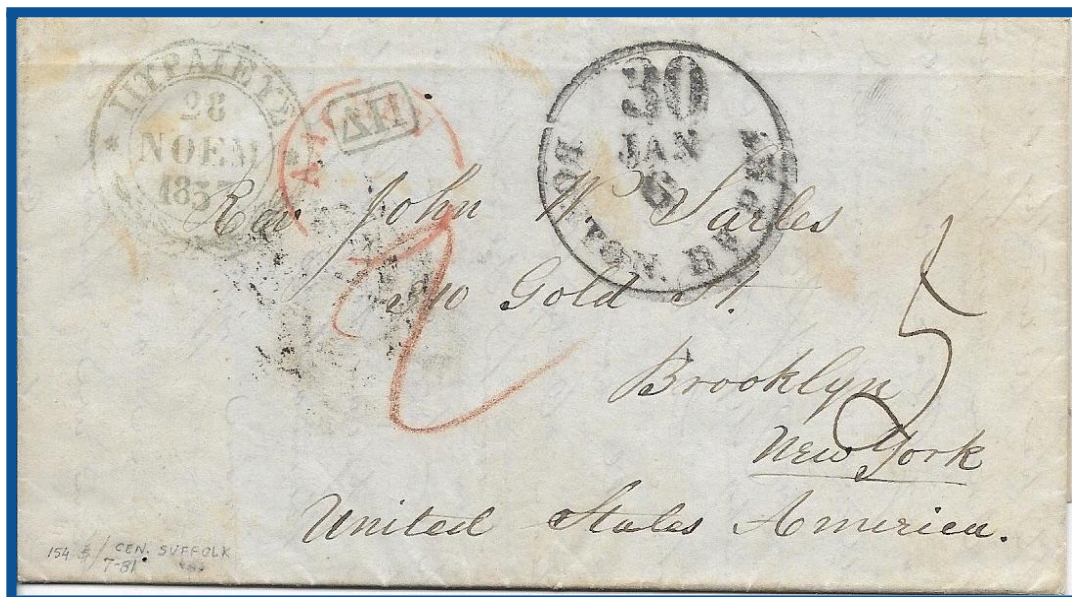 ΠΥΡΑΙΕΥΣ
28
ΝΟΕΜ
1857
ΔΠ
30
JAN
6
BOSTON. BR. PKT.
Rev John W Sarles
Gold St.
Brooklyn
New York
United States America.
2
5
154 5/ CEN. SUFFOLK
7-81